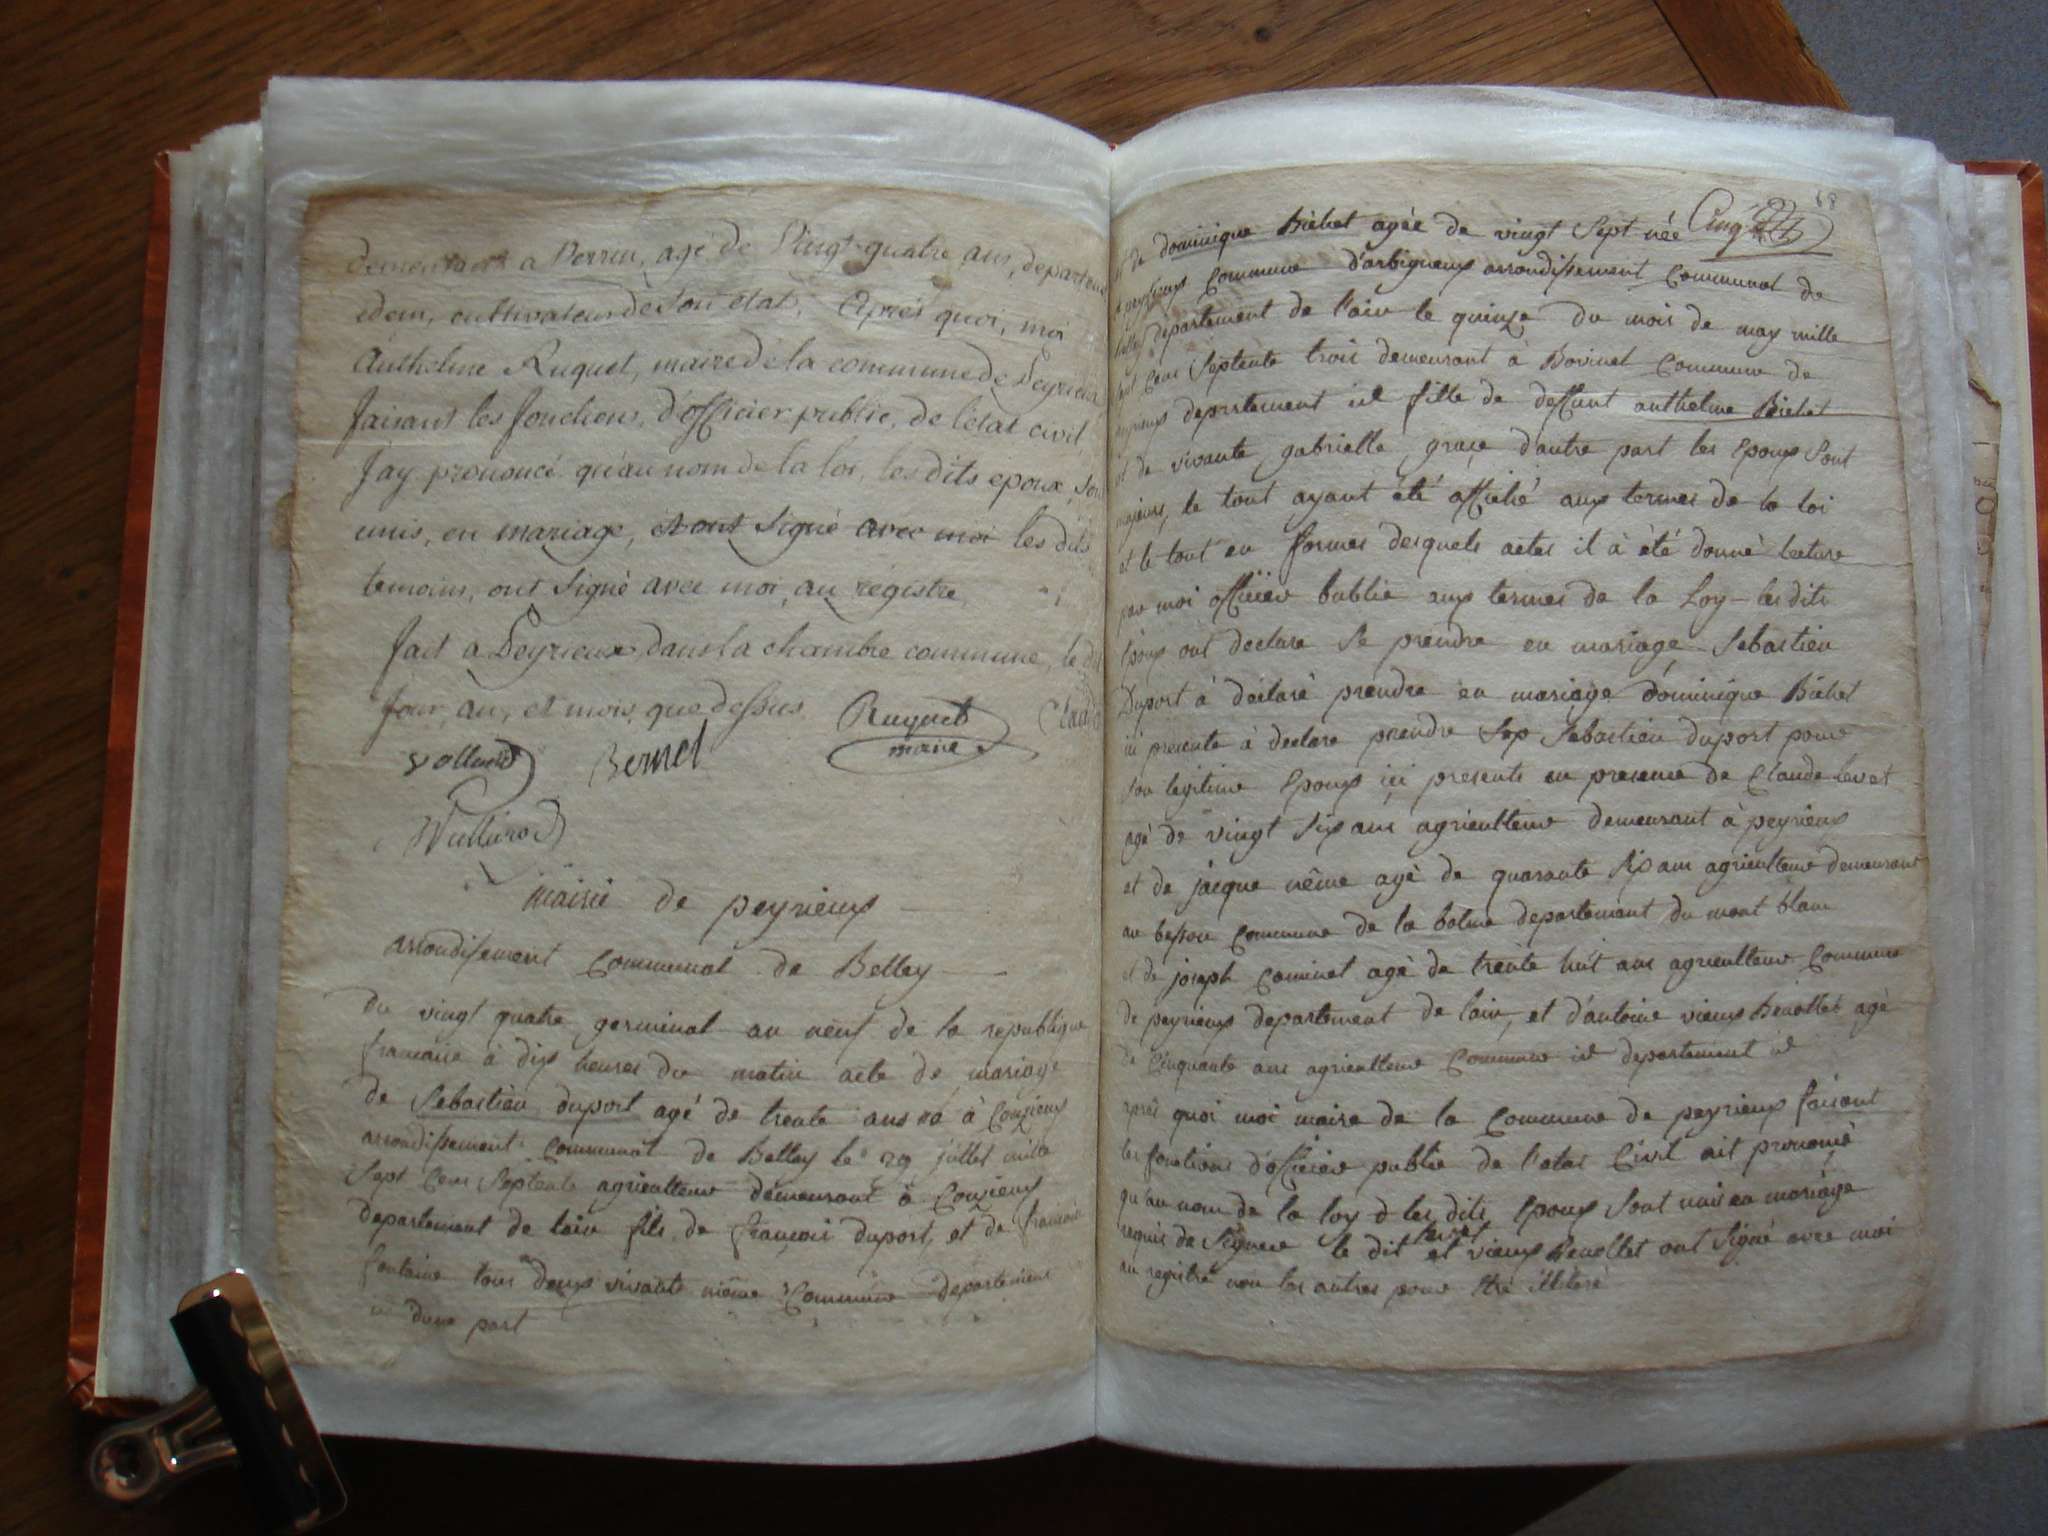 demeurant a Perrin, agé de Vingt-quatre ans, departem
idem, cultivateur de Son état, Après quoi, moi
Anthelme Ruquet, maire de la commune de Peyrieux
faisant les fonctions, d'officier public, de l'état civil,
J'ay prononcé qu'au nom de la loi, les dits epoux, sont
unis, en mariage, et ont Signé avec moi les dits
temoins, ont Signé avec moi, au régistre,
fait a Peyrieux, dans la chambre commune, le dit
Jour, an, et mois, que deSsus Ruquet
maire
Bernel
Mairie de peyrieux
arrondissement Communal de Belley
Du vingt quatre germinal an neuf de la republique
francaise à dix heures du matin acte de mariage
de Sebastien duport agé de trente ans né à Conzieux
arrondissement Communal de Belley le 29 jullet mille
Sept Cens Septente agriculteur demeurant à Conzieux
departement de lain fils de françois duport, et de francoise
fontaine tous deux vivants même Commune departement
id dune part
Cinq
68
et de dominique Bichet agée de vingt Sept née
a peyzieux Commune d'arbignieux arrondissement Communal de
belley departement de l'ain le quinze du mois de may mille
Sept Cens Septente trois demeurant à Bovinel Commune de
peyrieux departement id fille de deffunt anthelme Bichet
et de vivante gabrielle graçe d'autre part les Epoux Sont
majeurs, le tout ayant été affiché aux termes de la loi
et le tout en formes desquels actes il à été donné lecture
par moi officier bublic aux termes de la Loy - les dits
Epoux ont declare Se prendre en mariage Sebastien
Duport à déclaré prendre en mariage dominique Bichet
ici presente à declare prendre Sep Sebastien duport pour
Son legitime Epoux içi presents en presence de Claude levet
agé de vingt Six ans agriculteur demeurant à peyrieux
et de jacque même agé de quarante Six ans agriculteur demeurant
au besson Commune de la balme departement du mont blanc
et de joseph Cominet agé de trente huit ans agriculteur Commune
de peyrieux departement de lain, et d'antoine vieux Benollet agé
de Cinquante ans agriculteur Commune id departement id
après quoi moi maire de la Commune de peyrieux faisant
les fonctions d'officier public de l'etat Civil ait prononcé
qu'au nom de la loy d les dits Epoux Sont unis en mariage
levet
requis de Signer le dit et vieux Benollet ont Signé avec moi
au registre non les autres pour être illiteré